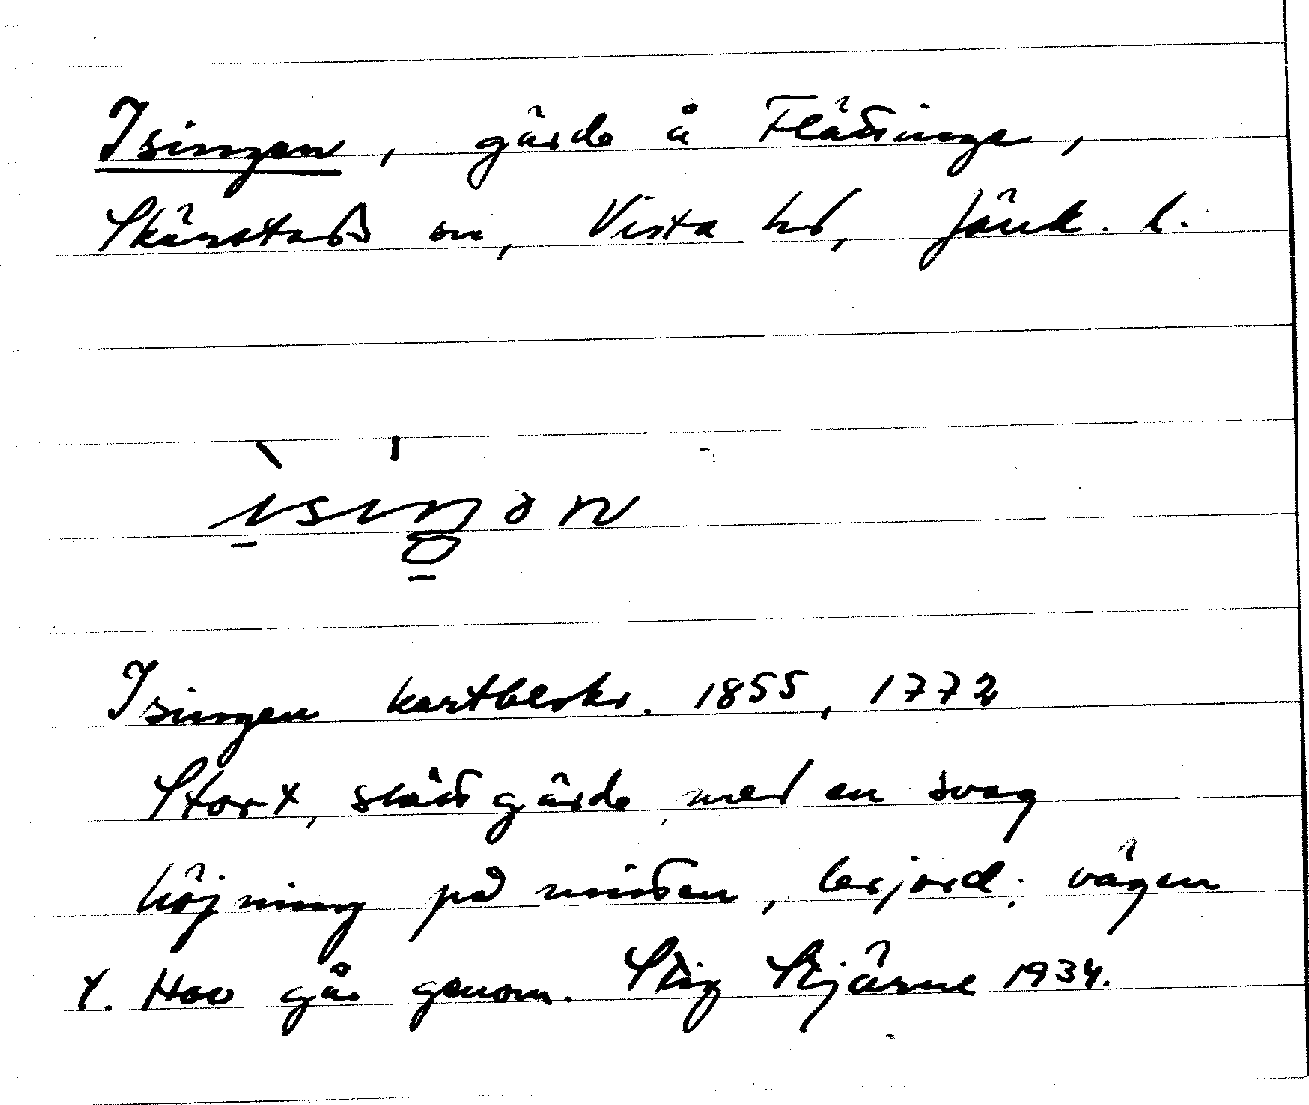 Isingen, gärde å Flättinge,
Skärstads sn, Vista hd, Jönk. l.
ìsiŋən
Isingen kartbeskr. 1855, 1772
Stort, slätt gärde med en svag
höjning på mitten, lerjord; vägen
t. Hov går genom. Stig Stjärne 1934.